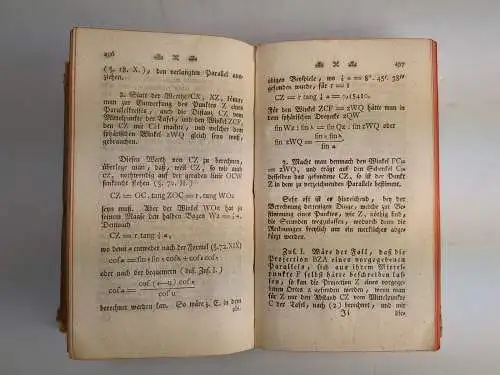 496
(§. 18. X.), den verlangten Parallel aus-
ziehen.
2. Statt der Werthe CX, XZ, könnte
man zur Entwerfung des Punktes Z eines
Parallelkreises, auch die Distanz CZ vom
Mittelpunkte der Tafel, und den Winkel ZCF,
den CZ mit CH macht, und welcher dem
sphärischen Winkel zWQ gleich seyn muß,
gebrauchen.
Diesen Werth von CZ zu berechnen,
überlege man, daß, weil CZ, so wie auch
cZ, nothwendig auf der geraden Linie OCW
senkrecht stehen (§. 72. II.)
CZ = OC. tang ZOC = r. tang WOz
seyn muß. Aber der Winkel WOz hat zu
seinem Maaße den halben Bogen Wz = ½ a.
Demnach
CZ = r tang ½ a;
wo denn a entweder nach der Formel (§. 72. XIX)
oder nach der bequemern (das. Zus. I.)
berechnet werden kan. So wäre z. E. in dem
obi-
497
obigen Beispiele, wo ½ a = 8°. 45'. 38''
gefunden wurde, für r = 1
CZ = r tang ½ a = 0,15410.
Für den Winkel ZCF = zWQ hätte man in
dem sphärischen Dreyecke zQW
sin Wz : sin λ = sin Qz : sin zWQ oder
3. Macht man demnach den Winkel FCα
= zWQ, und trägt auf den Schenkel Cα
desselben das gefundene CZ, so ist der Punkt
Z in dem zu verzeichnenden Parallele bestimmt.
Sehr oft ist es hinreichend, bey der
Berechnung derjenigen Dinge, welche zur Be-
stimmung eines Punktes, wie Z, nöthig sind,
die Secunden wegzulassen, wodurch denn die
Rechnungen freylich um ein merkliches verkürzt
werden.
Zus. I. Wäre der Fall, daß die
Projection BZA eines vorgegebenen
Parallels, sich aus ihrem Mittel-
punkte F selbsten beschreiben las-
sen, so kan die Projection Z eines vorgege-
benen Ortes z gefunden werden, wenn man
für Z nur den Abstand CZ vom Mittelpunkte
C der Tafel, nach (2) berechnet, und mit
Ii